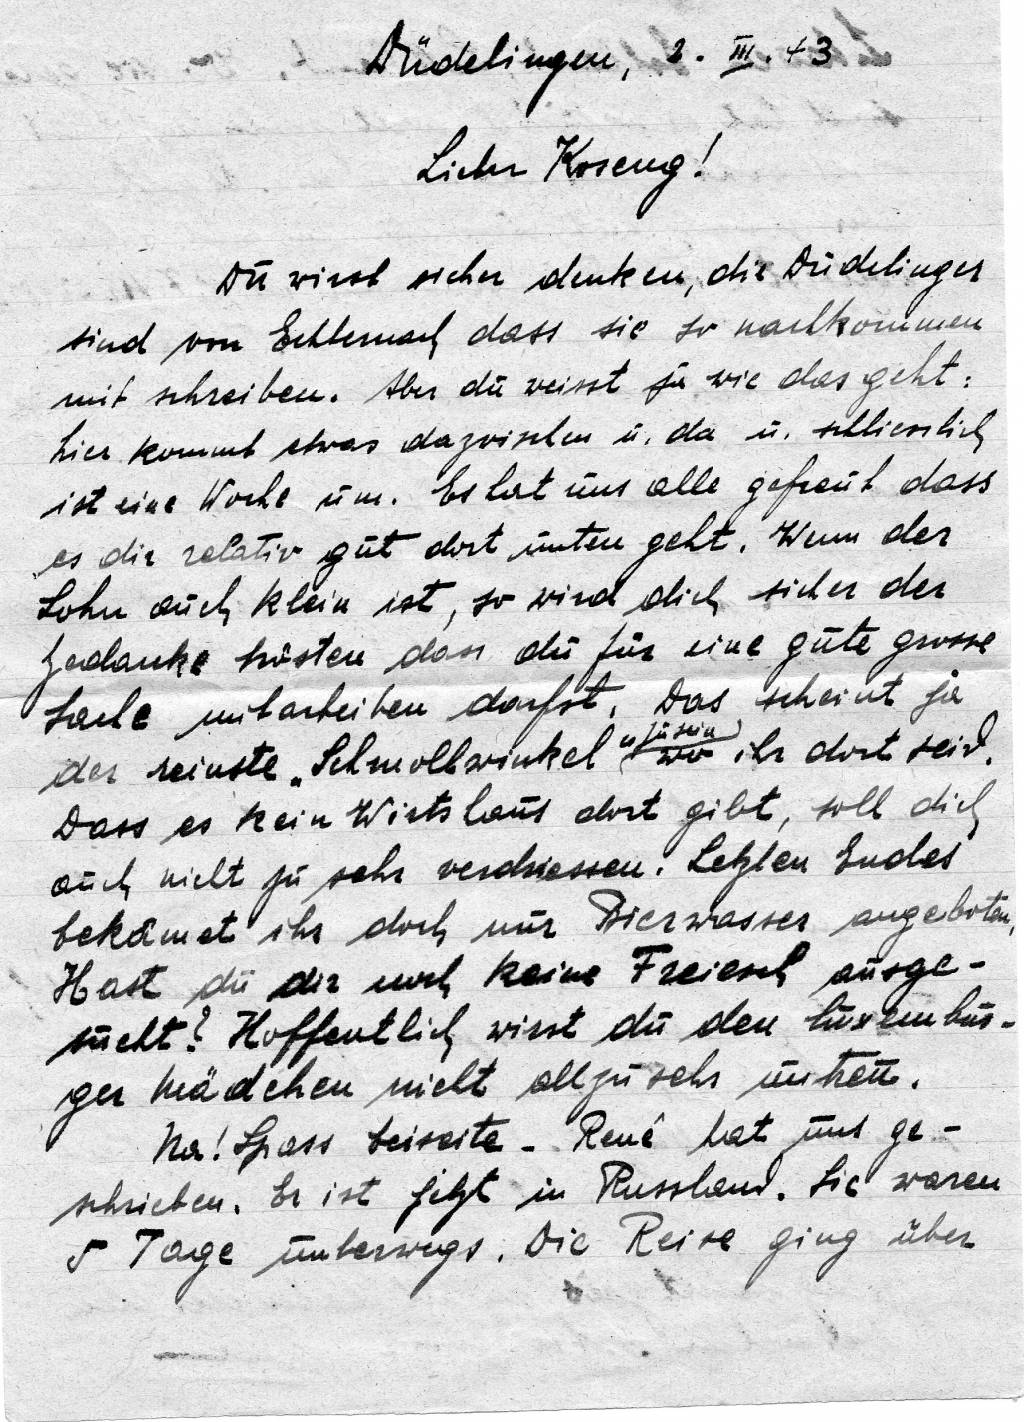 Düdelingen, 2. III. 43
Lieber Koseng!
Du wirst sicher denken, die Düdelinger
sind von Echternach dass sie so nachkommen
mit schreiben. Aber du weisst ja wie das geht:
hier kommt etwas dazwischen u. da u. schliesslich
ist eine Woche um. Es hat uns alle gefreut dass
es dir relativ gut dort unten geht. Wenn der
Lohn auch klein ist, so wird dich sicher der
Gedanke trösten dass du für eine gute grosse
Sache mitarbeiten darfst. Das scheint ja
der reinste „Schmollwinkel“ zu sein wo ihr dort seid.
Dass es kein Wirtshaus dort gibt, soll dich
auch nicht zu sehr verdriessen. Letzten Endes
bekämet ihr doch nur Bierwasser angeboten,
Hast du dir noch keine ausge-
sucht? Hoffentlich wirst du den luxembur-
ger Mädchen nicht allzusehr untreu.
Na! Spass beiseite - René hat uns ge-
schrieben. Er ist jetzt in Russland. Sie waren
5 Tage unterwegs. Die Reise ging über